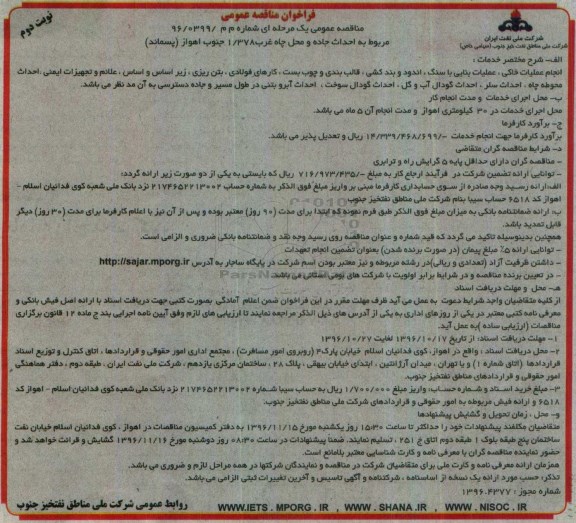 نوبت دوم
فراخوان مناقصه عمومی
مناقصه عمومی یک مرحله ای شماره م م /۹۶/۰۳۹۹
مربوط به احداث جاده و محل چاه غرب۱/۳۷۸ جنوب اهواز (پسماند)
شرکت ملی نفت ایران
شرکت ملی مناطق نفت خیز جنوب (سهامی خاص)
الف- شرح مختصر خدمات :
انجام عملیات خاکی ، عملیات بنایی با سنگ ، اندود و بند کشی ، قالب بندی و چوب بست ، کارهای فولادی ، بتن ریزی ، زیر اساس و اساس ، علائم و تجهیزات ایمنی ،احداث
محوطه چاه ، احداث سلر ، احداث گودال آب و گل ، احداث گودال سوخت ، احداث آبرو بتنی در طول مسیر و جاده دسترسی به آن مد نظر می باشد.
ب- محل اجرای خدمات و مدت انجام کار
محل اجرای خدمات در ۳۰ کیلومتری اهواز و مدت انجام آن ۵ ماه می باشد.
ج- برآورد کارفرما
برآورد کارفرما جهت انجام خدمات -/۱۴/۳۳۹/۴۶۸/۶۹۹ ریال و تعدیل پذیر می باشد.
د- شرایط مناقصه گران متقاضی
- مناقصه گران دارای حداقل پایه ۵ گرایش راه و ترابری
- توانایی ارائه تضمین شرکت در فرآیند ارجاع کار به مبلغ -/۷۱۶/۹۷۳/۴۳۵ ریال که بایستی به یکی از دو صورت زیر ارائه گردد:
الف:ارائه رسید وجه صادره از سوی حسابداری کارفرما مبنی بر واریز مبلغ فوق الذکر به شماره حساب ۲۱۷۴۶۵۲۲۱۳۰۰۲ نزد بانک ملی شعبه کوی فدائیان اسلام -
اهواز کد ۶۵۱۸ حساب سیبا بنام شرکت ملی مناطق نفتخیز جنوب
ب: ارائه ضمانتنامه بانکی به میزان مبلغ فوق الذکر طبق فرم نمونه که ابتدا برای مدت (۹۰ روز) معتبر بوده و پس از آن نیز با اعلام کارفرما برای مدت (۳۰ روز) دیگر
قابل تمدید باشد.
همچنین بدینوسیله تاکید می گردد که قید شماره و عنوان مناقصه روی رسید وجه نقد و ضمانتنامه بانکی ضروری و الزامی است.
- توانایی ارائه ۵٪ مبلغ پیمان (در صورت برنده شدن) بعنوان تضمین انجام تعهدات
- داشتن ظرفیت آزاد (تعدادی و ریالی)در رشته مربوطه و نیز معتبر بودن اسم شرکت در پایگاه ساجار به آدرس http://sajar.mporg.ir
- در تعیین برنده مناقصه و در شرایط برابر اولویت با شرکت های بومی استانی می باشد.
هـ- محل و مهلت دریافت اسناد
از کلیه متقاضیان واجد شرایط دعوت به عمل می آید ظرف مهلت مقرر در این فراخوان ضمن اعلام آمادگی بصورت کتبی جهت دریافت اسناد با ارائه اصل فیش بانکی و
معرفی نامه کتبی معتبر در یکی از روزهای اداری به یکی از آدرس های ذیل الذکر مراجعه نمایند تا ارزیابی های لازم وفق آیین نامه اجرایی بند ج ماده ۱۲ قانون برگزاری
مناقصات (ارزیابی ساده )به عمل آید.
۱- مهلت دریافت اسناد: از تاریخ ۱۳۹۶/۱۰/۱۷ لغایت ۱۳۹۶/۱۰/۲۷
۲- محل دریافت اسناد : واقع در اهواز، کوی فدائیان اسلام خیابان پارک۳ (روبروی امور مسافرت) ، مجتمع اداری امور حقوقی و قراردادها ، اتاق کنترل و توزیع اسناد
قراردادها (اتاق شماره ۱ ) و یا تهران ، میدان آرژانتین ، ابتدای خیابان بیهقی ، پلاک ۲۸ ، ساختمان مرکزی یازدهم ، شرکت ملی نفت ایران ، طبقه دوم ، دفتر هماهنگی
امور حقوقی و قراردادهای مناطق نفتخیز جنوب.
۳- مبلغ خرید اسناد و شماره حساب: واریز مبلغ ۱/۷۰۰/۰۰۰ ریال به حساب سیبا شماره ۲۱۷۴۶۵۲۲۱۳۰۰۲ نزد بانک ملی شعبه کوی فدائیان اسلام - اهواز کد
۶۵۱۸ و ارائه فیش مربوطه به امور حقوقی و قراردادهای شرکت ملی مناطق نفتخیز جنوب.
و- محل ، زمان تحویل و گشایش پیشنهادها
متقاضیان مکلفند پیشنهادات خود را حداکثر تا ساعت ۱۵:۳۰ روز یکشنبه مورخ ۱۳۹۶/۱۱/۱۵ به دفتر کمیسیون مناقصات در اهواز ، کوی فدائیان اسلام خیابان نفت
ساختمان پنج طبقه بلوک ۱ طبقه دوم اتاق ج ۲۵۱ ، تسلیم نمایند. ضمناً پیشنهادات در ساعت ۰۸:۳۰ روز دوشنبه مورخ ۱۳۹۶/۱۱/۱۶ گشایش و قرائت خواهد شد و
حضور نماینده مناقصه گران با معرفی نامه و کارت شناسایی معتبر بلامانع است.
همزمان ارائه معرفی نامه و کارت ملی برای متقاضیان شرکت در مناقصه و نمایندگان شرکتها در همه مراحل لازم و ضروری می باشد.
تذکر: حسب مورد ارائه یک نسخه از اساسنامه ، شرکتنامه و آگهی تاسیس و آخرین تغییرات ثبتی الزامی می باشد.
شماره مجوز : ۱۳۹۶.۴۳۷۷
WWW.IETS . MPORG . IR , WWW . SHANA . IR , WWW . NISOC . IR
روابط عمومی شرکت ملی مناطق نفتخیز جنوب